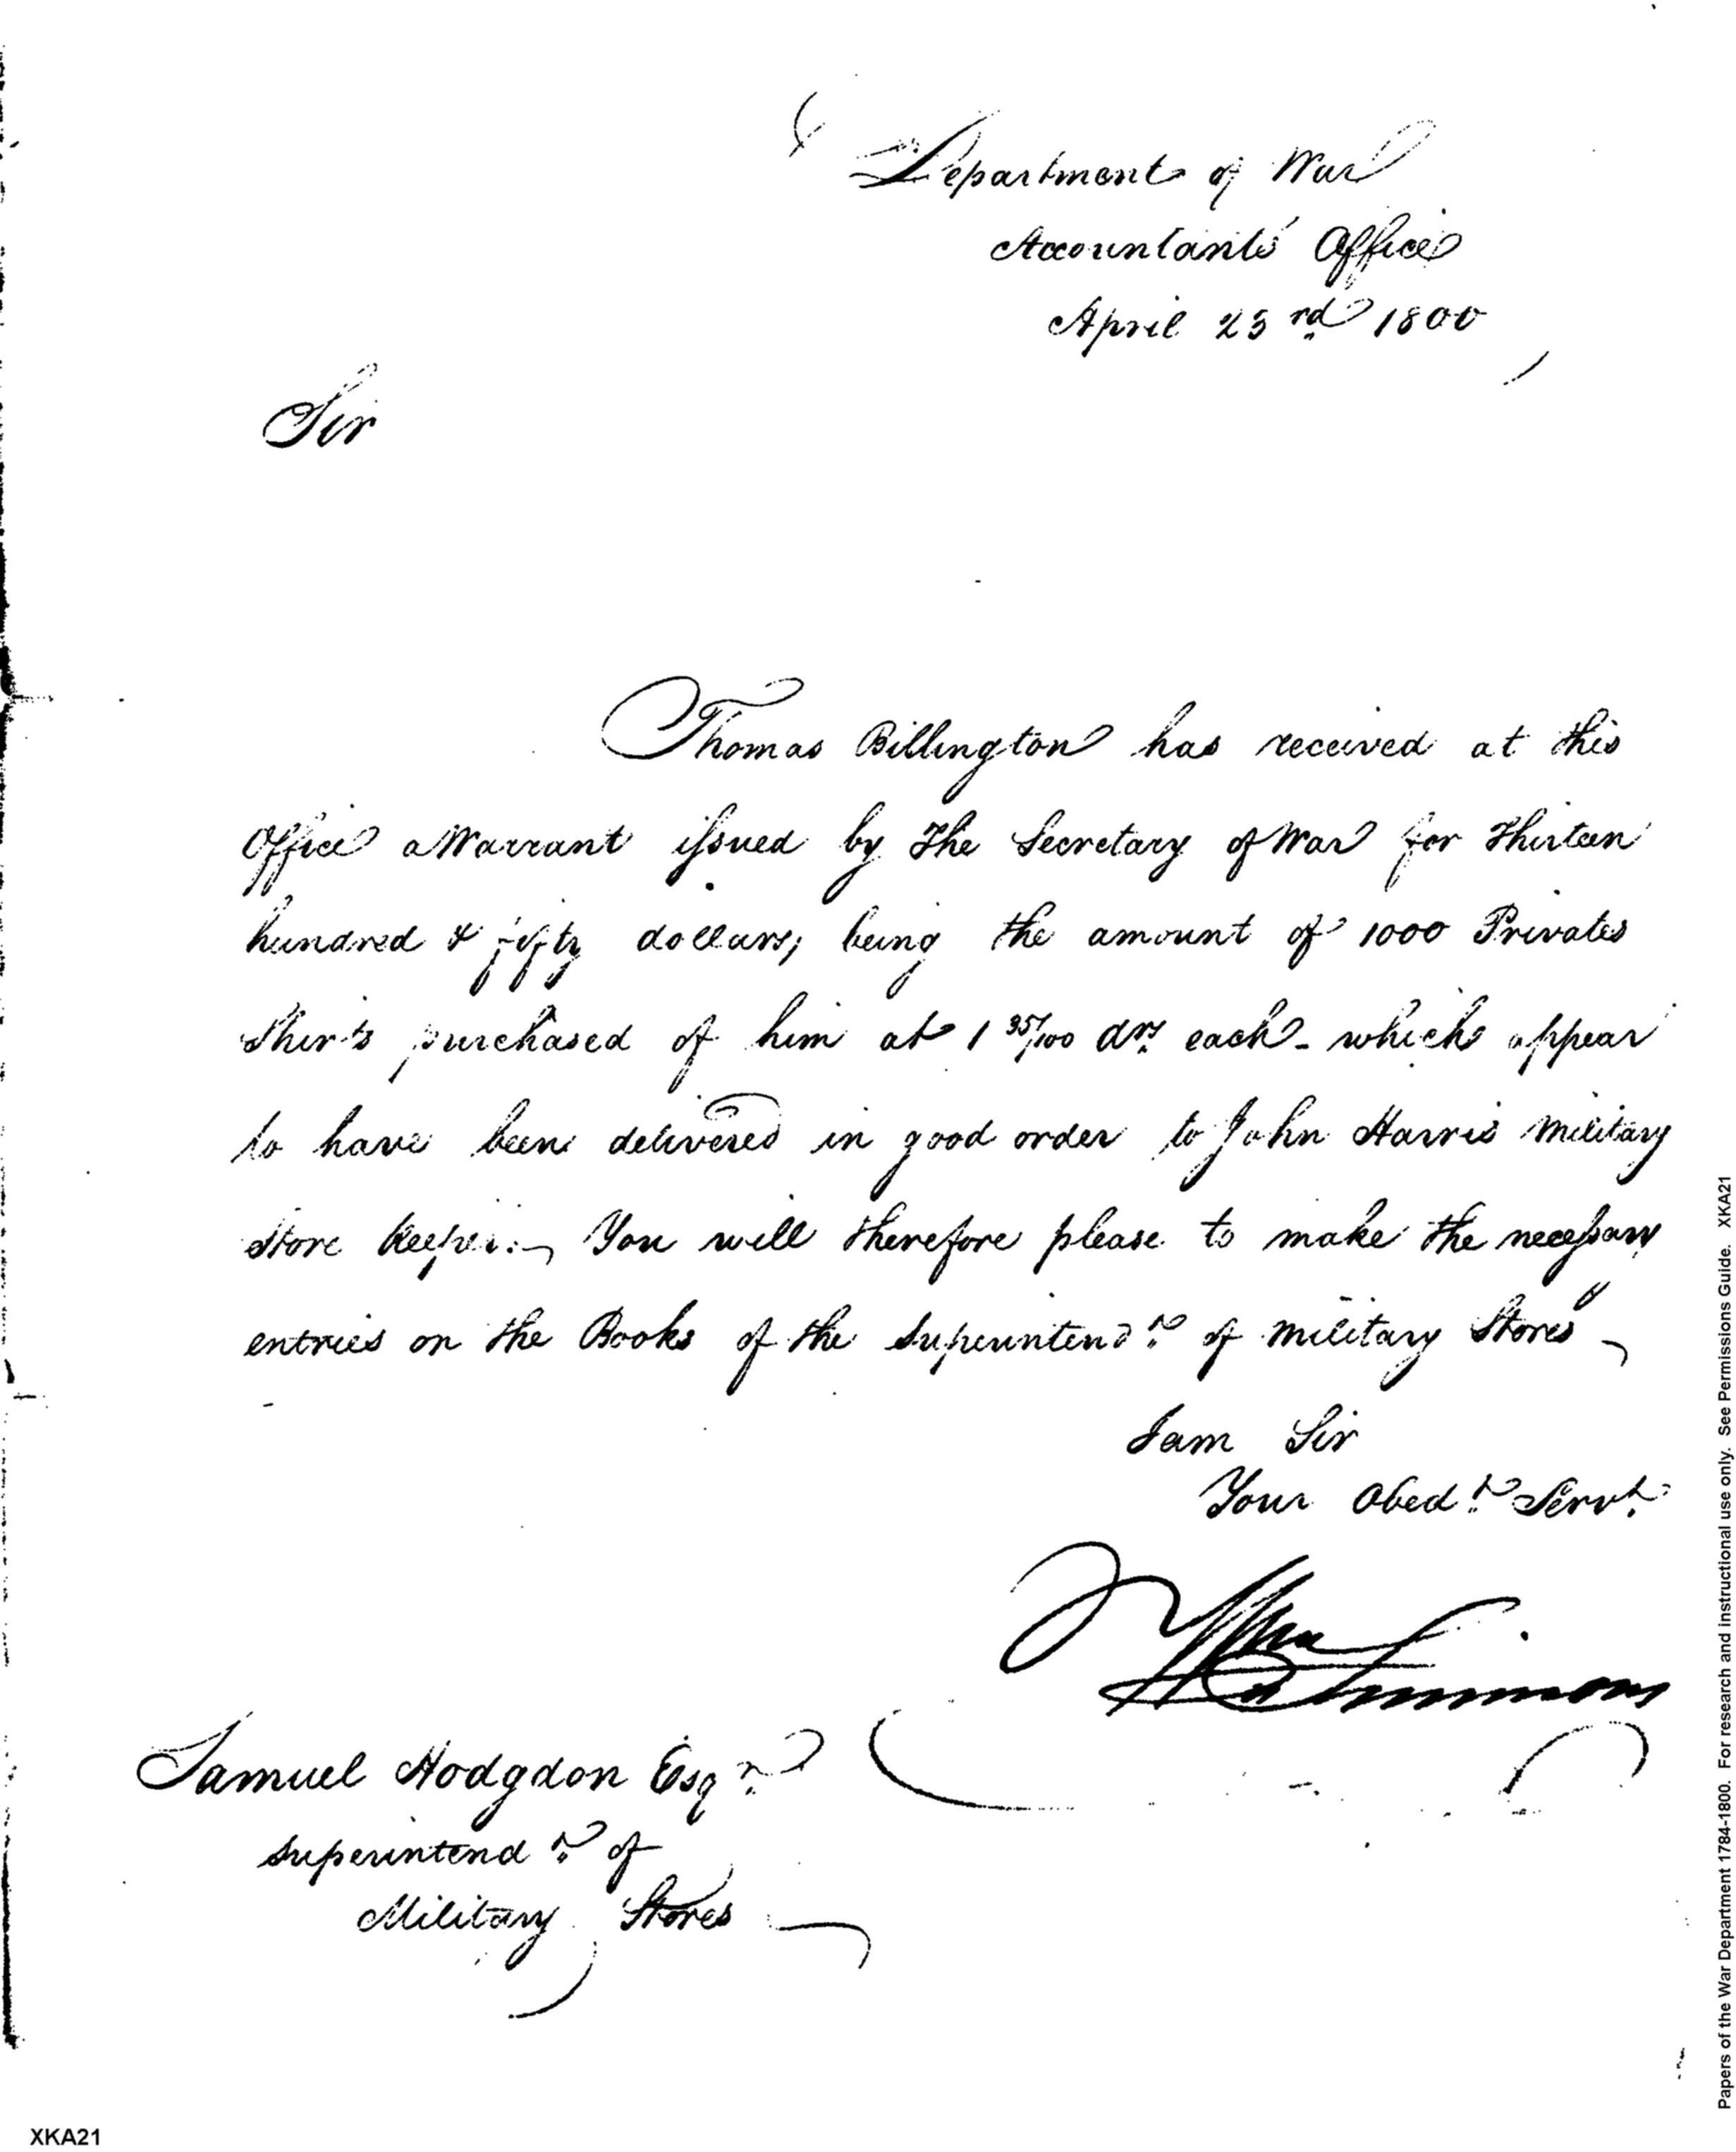 Department of War
Accountants Office
April 23rd 1800
Sir
Thomas Billington has received at this
Office a Warrant issued by the Secretary of War for Thirteen
hundred & fifty dollars; being the amount of 1000 Privates
Shirts purchased of him at 1 35/100 drs. each - which appear
to have been delivered in good order to John Harris Military
Store keeper. You will therefore please to make the necessary
entries on the Books of the Superintendt. of Military Stores
I am Sir
Your Obedt. Servt.
Wm Simmons
Samuel Hodgdon Esqr.
Superintendt. of
Military Stores
XKA21
Papers of the War Department 1784-1800. For research and instructional use only. See Permissions Guide. XKA21